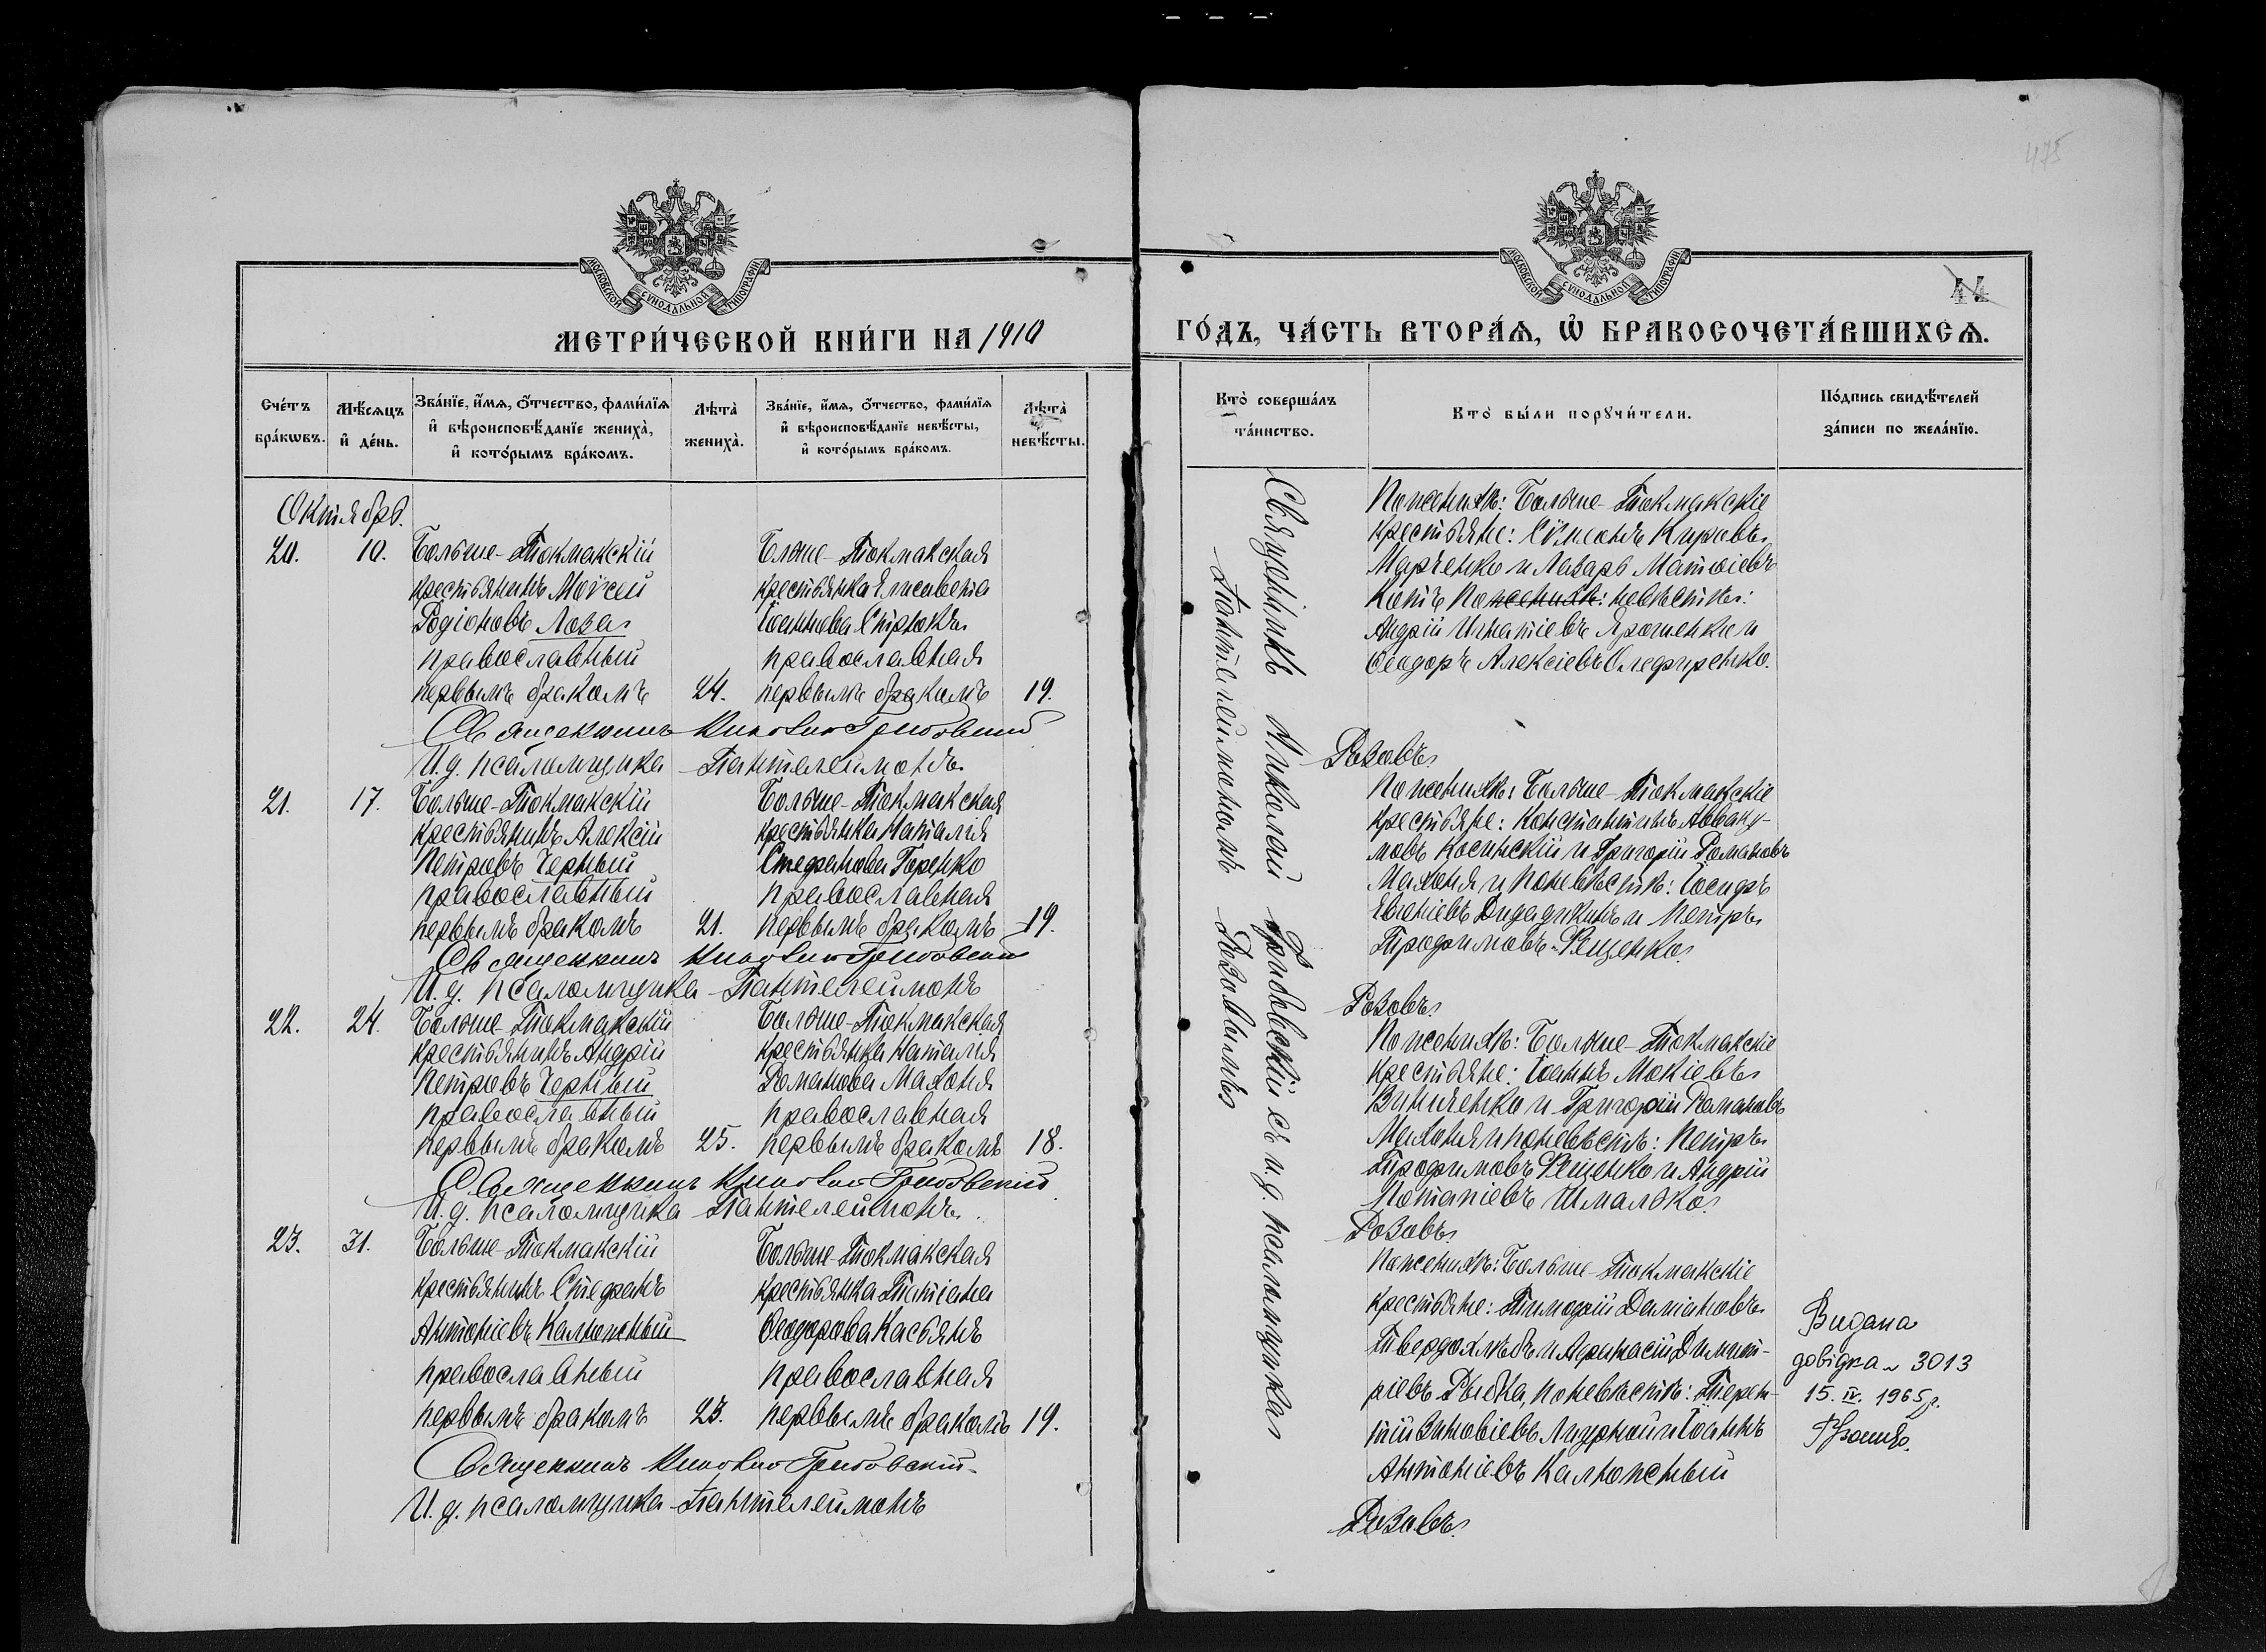 475
МОСКОВСКОЙ СѴНОДАЛЬНОЙ ТИПОГРАФІИ
МЕТРИ́ЧЕСКОЙ КНИ́ГИ НА 1910
Сче́тъ бра́кѡвъ.
Мѣ́сяцъ и҆ де́нь.
Зва́нїе, и҆́мѧ, ѻ҆́тчество, фами́лїѧ
и҆ вѣроисповѣ́данїе жениха̀,
и҆ кото́рымъ бра́комъ.
Лѣта̀ жениха̀.
Зва́нїе, и҆́мѧ, ѻ҆́тчество, фами́лїѧ
и҆ вѣроисповѣ́данїе невѣ́сты,
и҆ кото́рымъ бра́комъ.
Лѣта̀ невѣ́сты.
Октябрь.
20. 10.
Больше-Токмакскій
крестьянинъ Моѵсей
Родіоновъ Лоза
православный
первымъ бракомъ
24.
Больше-Токмакская
крестьянка Елисавета
Іоаннова Стрюкъ
православная
первымъ бракомъ
19.
Священникъ Николай Грибовскій
И. д. псаломщика Пантелеимонъ
21. 17.
Больше-Токмакскій
крестьянинъ Алексій
Петровъ Черный
православный
первымъ бракомъ
21.
Больше-Токмакская
крестьянка Наталія
Стефанова Горенко
православная
первымъ бракомъ
19.
Священникъ Николай Грибовскій
И. д. псаломщика Пантелеимонъ
22. 24.
Больше-Токмакскій
крестьянинъ Андрій
Петровъ Черный
православный
первымъ бракомъ
25.
Больше-Токмакская
крестьянка Наталія
Романова Махоня
православная
первымъ бракомъ
18.
Священникъ Николай Грибовскій
И. д. псаломщика Пантелеимонъ
23. 31.
Больше-Токмакскій
крестьянинъ Стефанъ
Антоніевъ Калюжный
православный
первымъ бракомъ
23.
Больше-Токмакская
крестьянка Татіана
Ѳеодорова Касьянъ
православная
первымъ бракомъ
19.
Священникъ Николай Грибовскій
И. д. псаломщика Пантелеимонъ
МОСКОВСКОЙ СѴНОДАЛЬНОЙ ТИПОГРАФІИ
44
ГО́ДЪ, ЧА́СТЬ ВТОРА́Ѧ, Ѡ҆ БРАКОСОЧЕТА́ВШИХСѦ.
Кто̀ соверша́лъ та́инство.
Кто̀ бы́ли порꙋчи́тели.
По́дпись свидѣ́телей
за́писи по жела́нїю.
Священникъ Николай Грибовскій съ и. д. псаломщика
Пантелеимономъ Розовымъ
По женихѣ: Больше-Токмакскіе
крестьяне: Сѵмеонъ Кировъ
Марченко и Лазарь Матѳіевъ
Котъ По женихѣ: невѣстѣ:
Андрій Игнатіевъ Ярошенко и
Ѳеодоръ Алексіевъ Олефиренко.
Розовъ.
По женихѣ: Больше-Токмакскіе
крестьяне: Константинъ Авваку-
мовъ Косинскій и Григорій Романовъ
Махоня и по невѣстѣ: Іосифъ
Петръ
Трофимовъ Фещенко.
Розовъ.
По женихѣ: Больше-Токмакскіе
крестьяне: Іоаннъ Мокіевъ
Винниченко и Григорій Романовъ
Махоня и по невѣстѣ: Петръ
Трофимовъ Фещенко и Андрій
Потапіевъ Шмалько.
Розовъ.
По женихѣ: Больше-Токмакскіе
крестьяне: Тимофій Даміановъ
Твердохлѣбъ и Афанасій Димит-
ріевъ Рыбка, по невѣстѣ: Терен-
тій Зиновіевъ и Іоаннъ
Антоніевъ Калюжный
Розовъ.
Видана
довідка № 3013
15. IV. 1965 р.